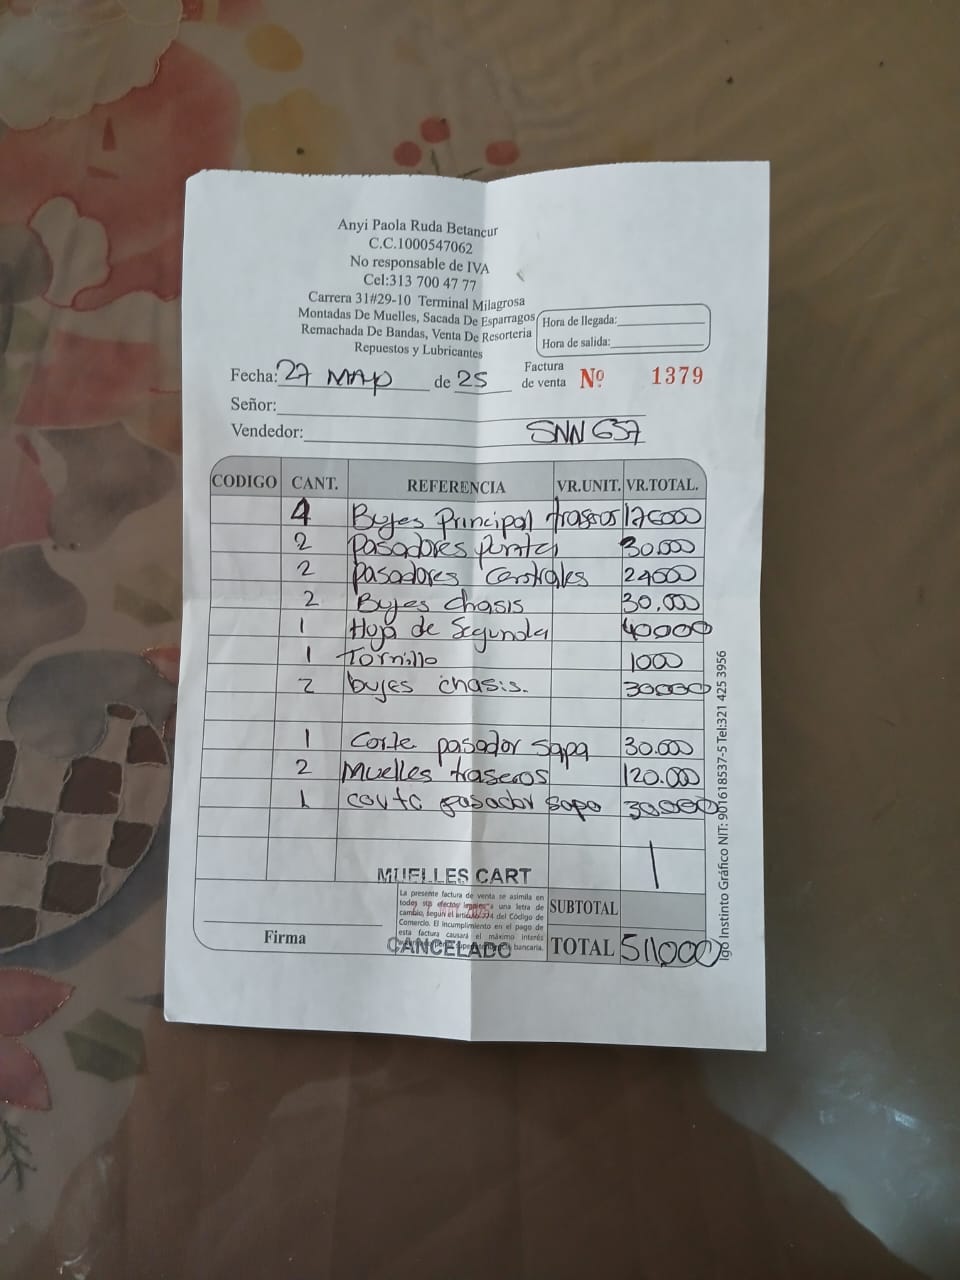 Anyi Paola Ruda Betancur
C.C.1000547062
No responsable de IVA
Cel:313 700 47 77
Carrera 31#29-10 Terminal Milagrosa
Montadas De Muelles, Sacada De Esparragos
Remachada De Bandas, Venta De Resorteria
Repuestos y Lubricantes
Hora de llegada:
Hora de salida:
Fecha: 27 MAYO de 25 Factura de venta Nº 1379
Señor:
Vendedor: SNN 637
CODIGO CANT. REFERENCIA VR.UNIT. VR.TOTAL.
4 Bujes Principal traseros 176000
2 Pasadores punta 30.000
2 Pasadores Centrales 24000
2 Bujes chasis 30.000
1 Hoja de Segunda 40000
1 Tornillo 1000
2 bujes chasis. 30000
1 Corte pasador sapa 30.000
2 Muelles traseros 120.000
1 corte pasador sapa 30000
MUELLES CART
La presente factura de venta se asimila en
todos sus efectos legales a una letra de
cambio, según el artículo 774 del Código de
Comercio. El incumplimiento en el pago de
esta factura causará el máximo interés
bancaria.
CANCELADO
SUBTOTAL
TOTAL 511,000
Firma
Igo Instinto Gráfico NIT: 901618537-5 Tel:321 425 3956